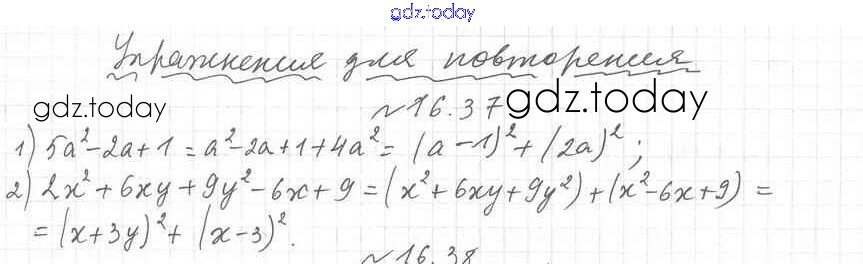 gdz.today
Упражнения для повторения
gdz.today №16.37 gdz.today
1) 5a² - 2a + 1 = a² - 2a + 1 + 4a² = (a - 1)² + (2a)²;
2) 2x² + 6xy + 9y² - 6x + 9 = (x² + 6xy + 9y²) + (x² - 6x + 9) =
= (x + 3y)² + (x - 3)².
№16.38